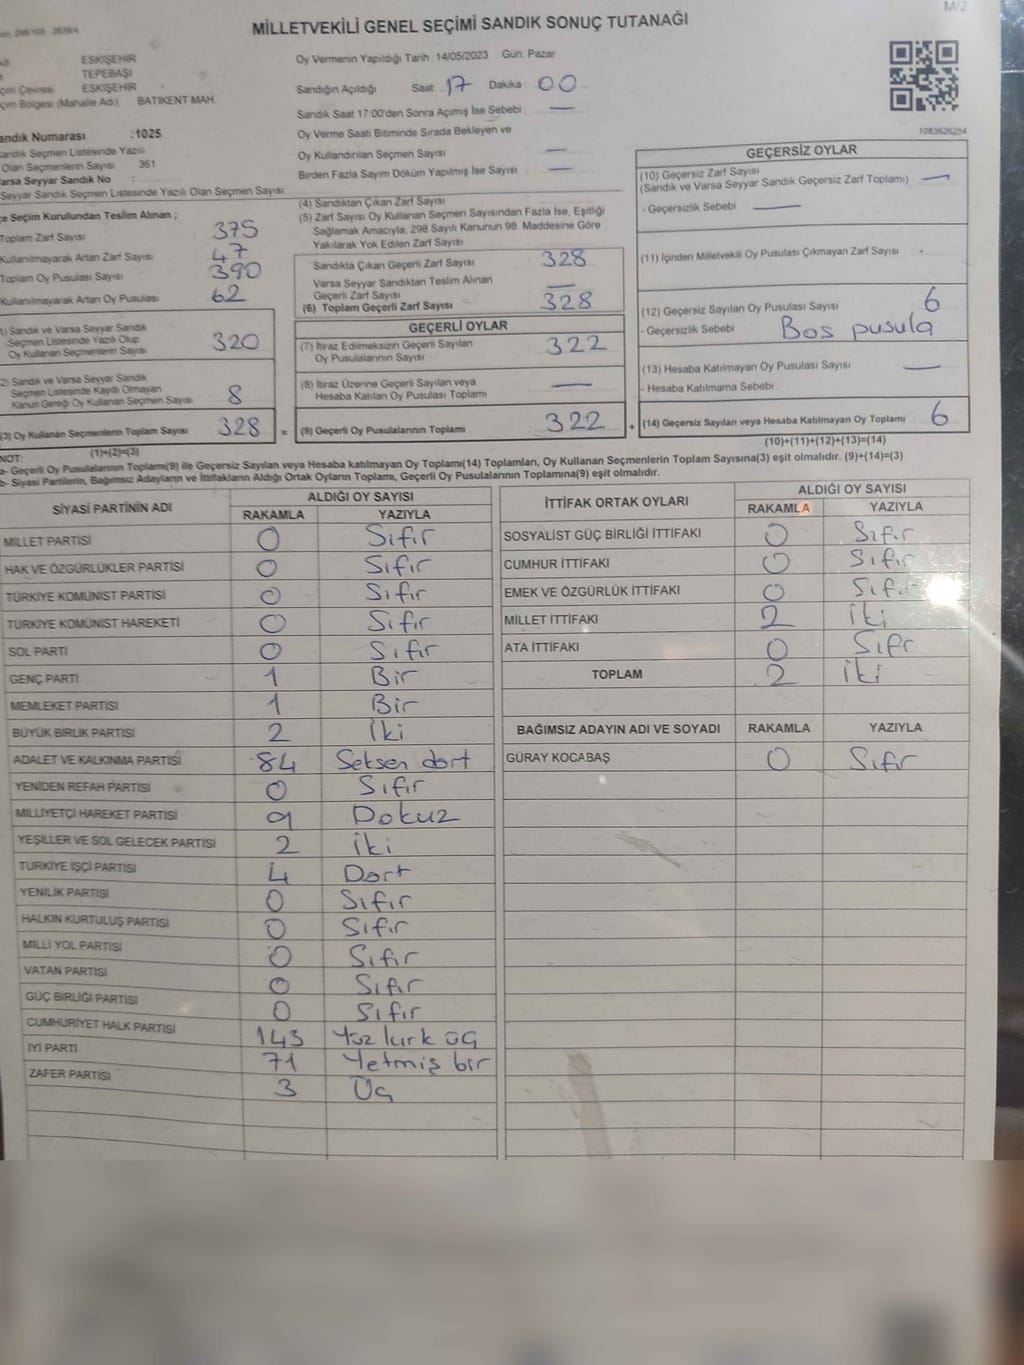 MİLLETVEKİLİ GENEL SEÇİMİ SANDIK SONUÇ TUTANAĞI
M/2
ESKİŞEHİR
TEPEBAŞI
çim Çevresi ESKİŞEHİR
çim Bölgesi (Mahalle Adı) BATIKENT MAH.
andık Numarası :1025
Sandık Seçmen Listesinde Yazılı
Olan Seçmenlerin Sayısı 361
Varsa Seyyar Sandık No :
Seyyar Sandık Seçmen Listesinde Yazılı Olan Seçmen Sayısı:
Oy Vermenin Yapıldığı Tarih : 14/05/2023 Gün: Pazar
Sandığın Açıldığı Saat 17 Dakika 00
Sandık Saat 17:00'den Sonra Açımış İse Sebebi : —
Oy Verme Saati Bitiminde Sırada Bekleyen ve
Oy Kullandırılan Seçmen Sayısı —
Birden Fazla Sayım Döküm Yapılmış İse Sayısı —
1083626254
çe Seçim Kurulundan Teslim Alınan ;
Toplam Zarf Sayısı 375
Kullanılmayarak Artan Zarf Sayısı 47
Toplam Oy Pusulası Sayısı 390
Kullanılmayarak Artan Oy Pusulası 62
1) Sandık ve Varsa Seyyar Sandık
Seçmen Listesinde Yazılı Olup
Oy Kullanan Seçmenlerin Sayısı 320
2) Sandık ve Varsa Seyyar Sandık
Seçmen Listesinde Kayıtlı Olmayan
Kanun Gereği Oy Kullanan Seçmen Sayısı 8
(3) Oy Kullanan Seçmenlerin Toplam Sayısı 328 =
(1)+(2)=(3)
(4) Sandıktan Çıkan Zarf Sayısı
(5) Zarf Sayısı Oy Kullanan Seçmen Sayısından Fazla İse, Eşitliği
Sağlamak Amacıyla, 298 Sayılı Kanunun 98. Maddesine Göre
Yakılarak Yok Edilen Zarf Sayısı
Sandıkta Çıkan Geçerli Zarf Sayısı 328
Varsa Seyyar Sandıktan Teslim Alınan
Geçerli Zarf Sayısı —
(6) Toplam Geçerli Zarf Sayısı 328
GEÇERLİ OYLAR
(7) İtiraz Edilmeksizin Geçerli Sayılan
Oy Pusulalarının Sayısı 322
(8) İtiraz Üzerine Geçerli Sayılan veya
Hesaba Katılan Oy Pusulası Toplamı —
(9) Geçerli Oy Pusulalarının Toplamı 322 +
GEÇERSİZ OYLAR
(10) Geçersiz Zarf Sayısı
(Sandık ve Varsa Seyyar Sandık Geçersiz Zarf Toplamı) —
- Geçersizlik Sebebi —
(11) İçinden Milletvekili Oy Pusulası Çıkmayan Zarf Sayısı
(12) Geçersiz Sayılan Oy Pusulası Sayısı 6
- Geçersizlik Sebebi Boş pusula
(13) Hesaba Katılmayan Oy Pusulası Sayısı —
- Hesaba Katılmama Sebebi
(14) Geçersiz Sayılan veya Hesaba Katılmayan Oy Toplamı 6
(10)+(11)+(12)+(13)=(14)
NOT:
a- Geçerli Oy Pusulalarının Toplamı(9) ile Geçersiz Sayılan veya Hesaba katılmayan Oy Toplamı(14) Toplamları, Oy Kullanan Seçmenlerin Toplam Sayısına(3) eşit olmalıdır. (9)+(14)=(3)
b- Siyasi Partilerin, Bağımsız Adayların ve İttifakların Aldığı Ortak Oyların Toplamı, Geçerli Oy Pusulalarının Toplamına(9) eşit olmalıdır.
SİYASİ PARTİNİN ADI ALDIĞI OY SAYISI
RAKAMLA YAZIYLA
MİLLET PARTİSİ 0 Sıfır
HAK VE ÖZGÜRLÜKLER PARTİSİ 0 Sıfır
TÜRKİYE KOMÜNİST PARTİSİ 0 Sıfır
TÜRKİYE KOMÜNİST HAREKETİ 0 Sıfır
SOL PARTİ 0 Sıfır
GENÇ PARTİ 1 Bir
MEMLEKET PARTİSİ 1 Bir
BÜYÜK BİRLİK PARTİSİ 2 iki
ADALET VE KALKINMA PARTİSİ 84 Seksen dört
YENİDEN REFAH PARTİSİ 0 Sıfır
MİLLİYETÇİ HAREKET PARTİSİ 9 Dokuz
YEŞİLLER VE SOL GELECEK PARTİSİ 2 iki
TÜRKİYE İŞÇİ PARTİSİ 4 Dört
YENİLİK PARTİSİ 0 Sıfır
HALKIN KURTULUŞ PARTİSİ 0 Sıfır
MİLLİ YOL PARTİSİ 0 Sıfır
VATAN PARTİSİ 0 Sıfır
GÜÇ BİRLİĞİ PARTİSİ 0 Sıfır
CUMHURİYET HALK PARTİSİ 143 Yüz kırk üç
İYİ PARTİ 71 Yetmiş bir
ZAFER PARTİSİ 3 Üç
İTTİFAK ORTAK OYLARI ALDIĞI OY SAYISI
RAKAMLA YAZIYLA
SOSYALİST GÜÇ BİRLİĞİ İTTİFAKI 0 Sıfır
CUMHUR İTTİFAKI 0 Sıfır
EMEK VE ÖZGÜRLÜK İTTİFAKI 0 Sıfır
MİLLET İTTİFAKI 2 iki
ATA İTTİFAKI 0 Sıfr
TOPLAM 2 iki
BAĞIMSIZ ADAYIN ADI VE SOYADI RAKAMLA YAZIYLA
GÜRAY KOCABAŞ 0 Sıfır